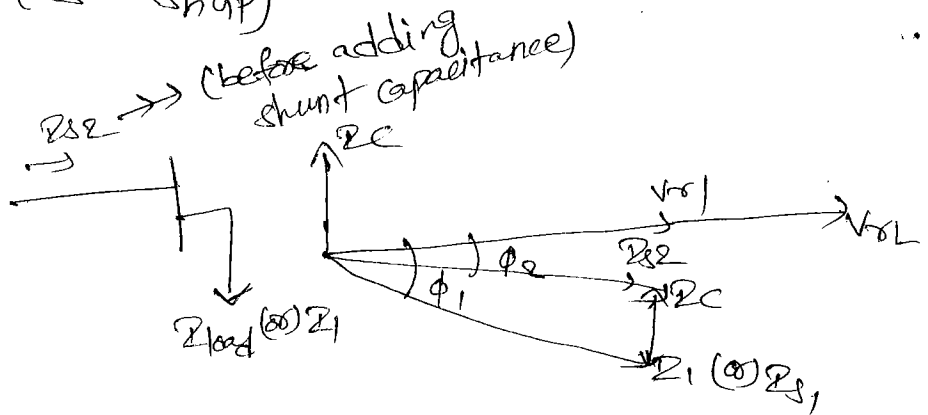 (before adding
shunt capacitance)
Is2
Ic
Vr1
Vr2
Is2
φ2
φ1
Ic
Iload (or) I1
I1 (or) Is1